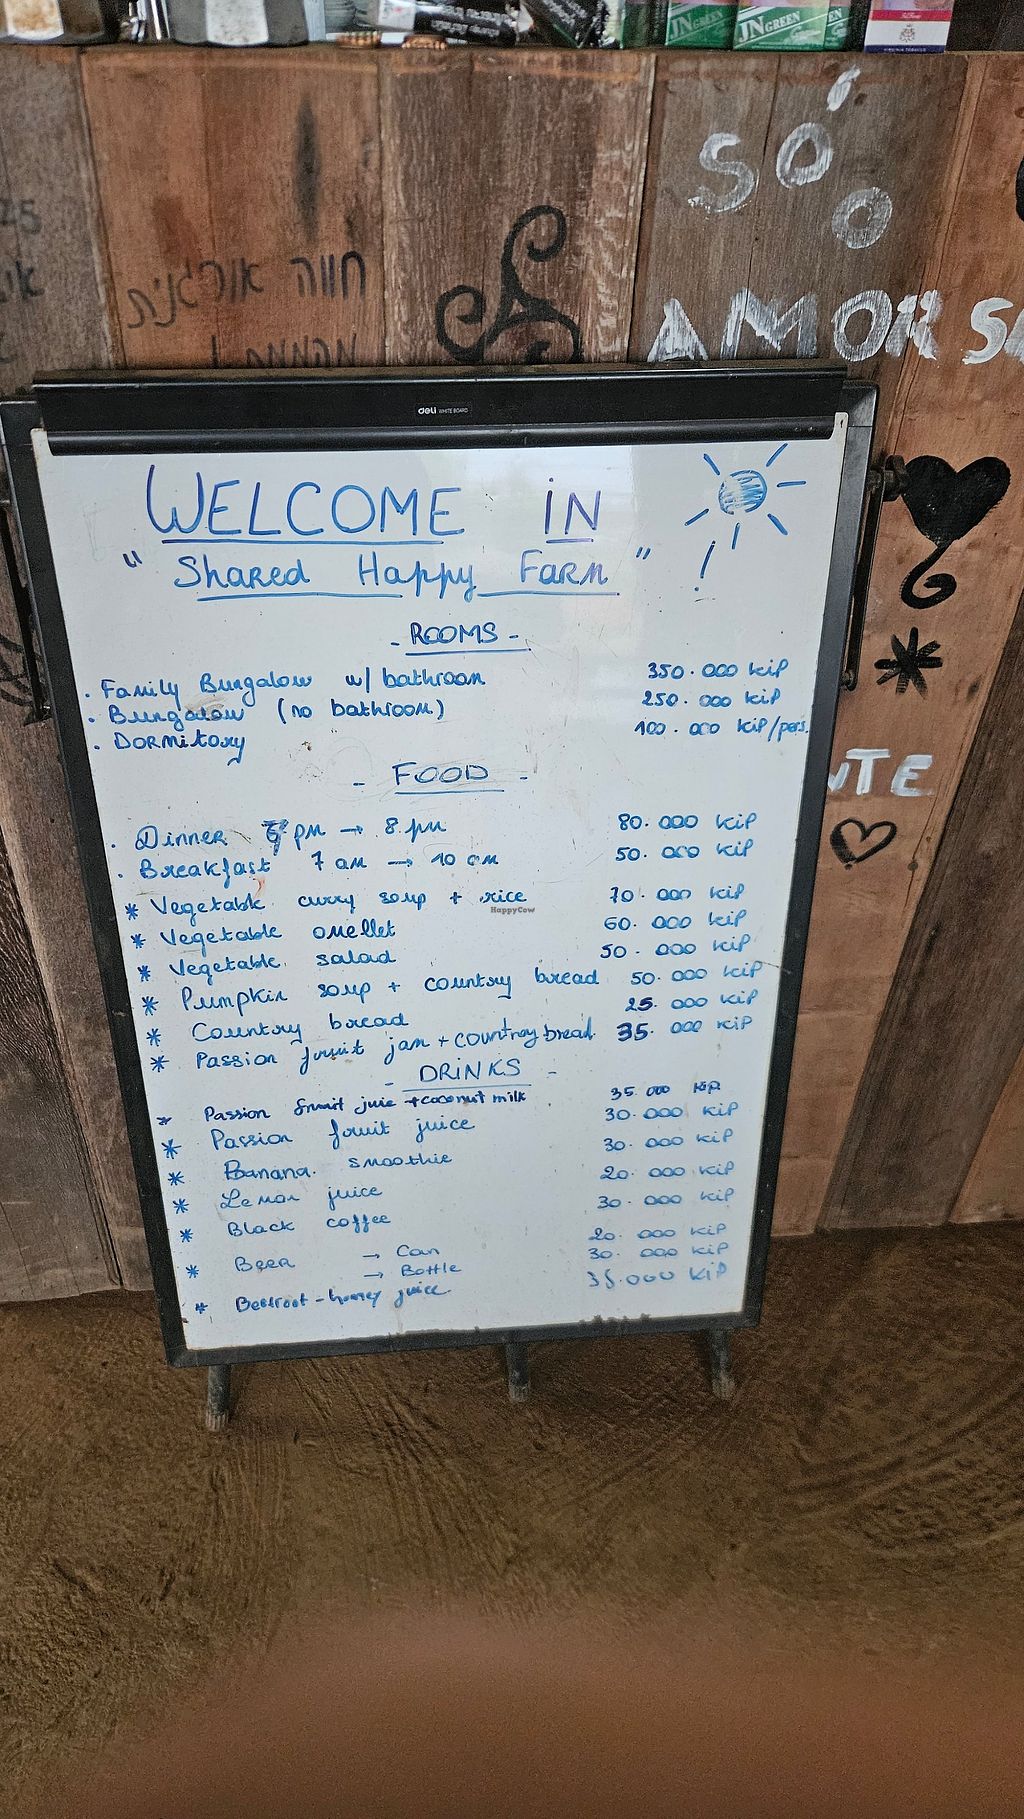 JN GREEN
JN GREEN
SÓ
O
AMOR
חווה אורגנית
deli WHITE BOARD
WELCOME IN
"Shared Happy Farm" !
- ROOMS -
. Family Bungalow w/ bathroom 350.000 kip
. Bungalow (no bathroom) 250.000 kip
. Dormitory 100.000 kip/pers.
- FOOD -
. Dinner 6 pm → 8 pm 80.000 kip
. Breakfast 7 am → 10 am 50.000 kip
* Vegetable curry soup + rice 70.000 kip
* Vegetable omellet 60.000 kip
* Vegetable salad 50.000 kip
* Pumpkin soup + country bread 50.000 kip
* Country bread 25.000 kip
* Passion fruit jam + country bread 35.000 kip
- DRINKS -
* Passion fruit juic + coconut milk 35.000 kip
* Passion fruit juice 30.000 kip
* Banana smoothie 30.000 kip
* Lemon juice 20.000 kip
* Black coffee 30.000 kip
* Beer → Can 20.000 kip
→ Bottle 30.000 kip
* Beetroot-honey juice 35.000 kip
NTE
HappyCow